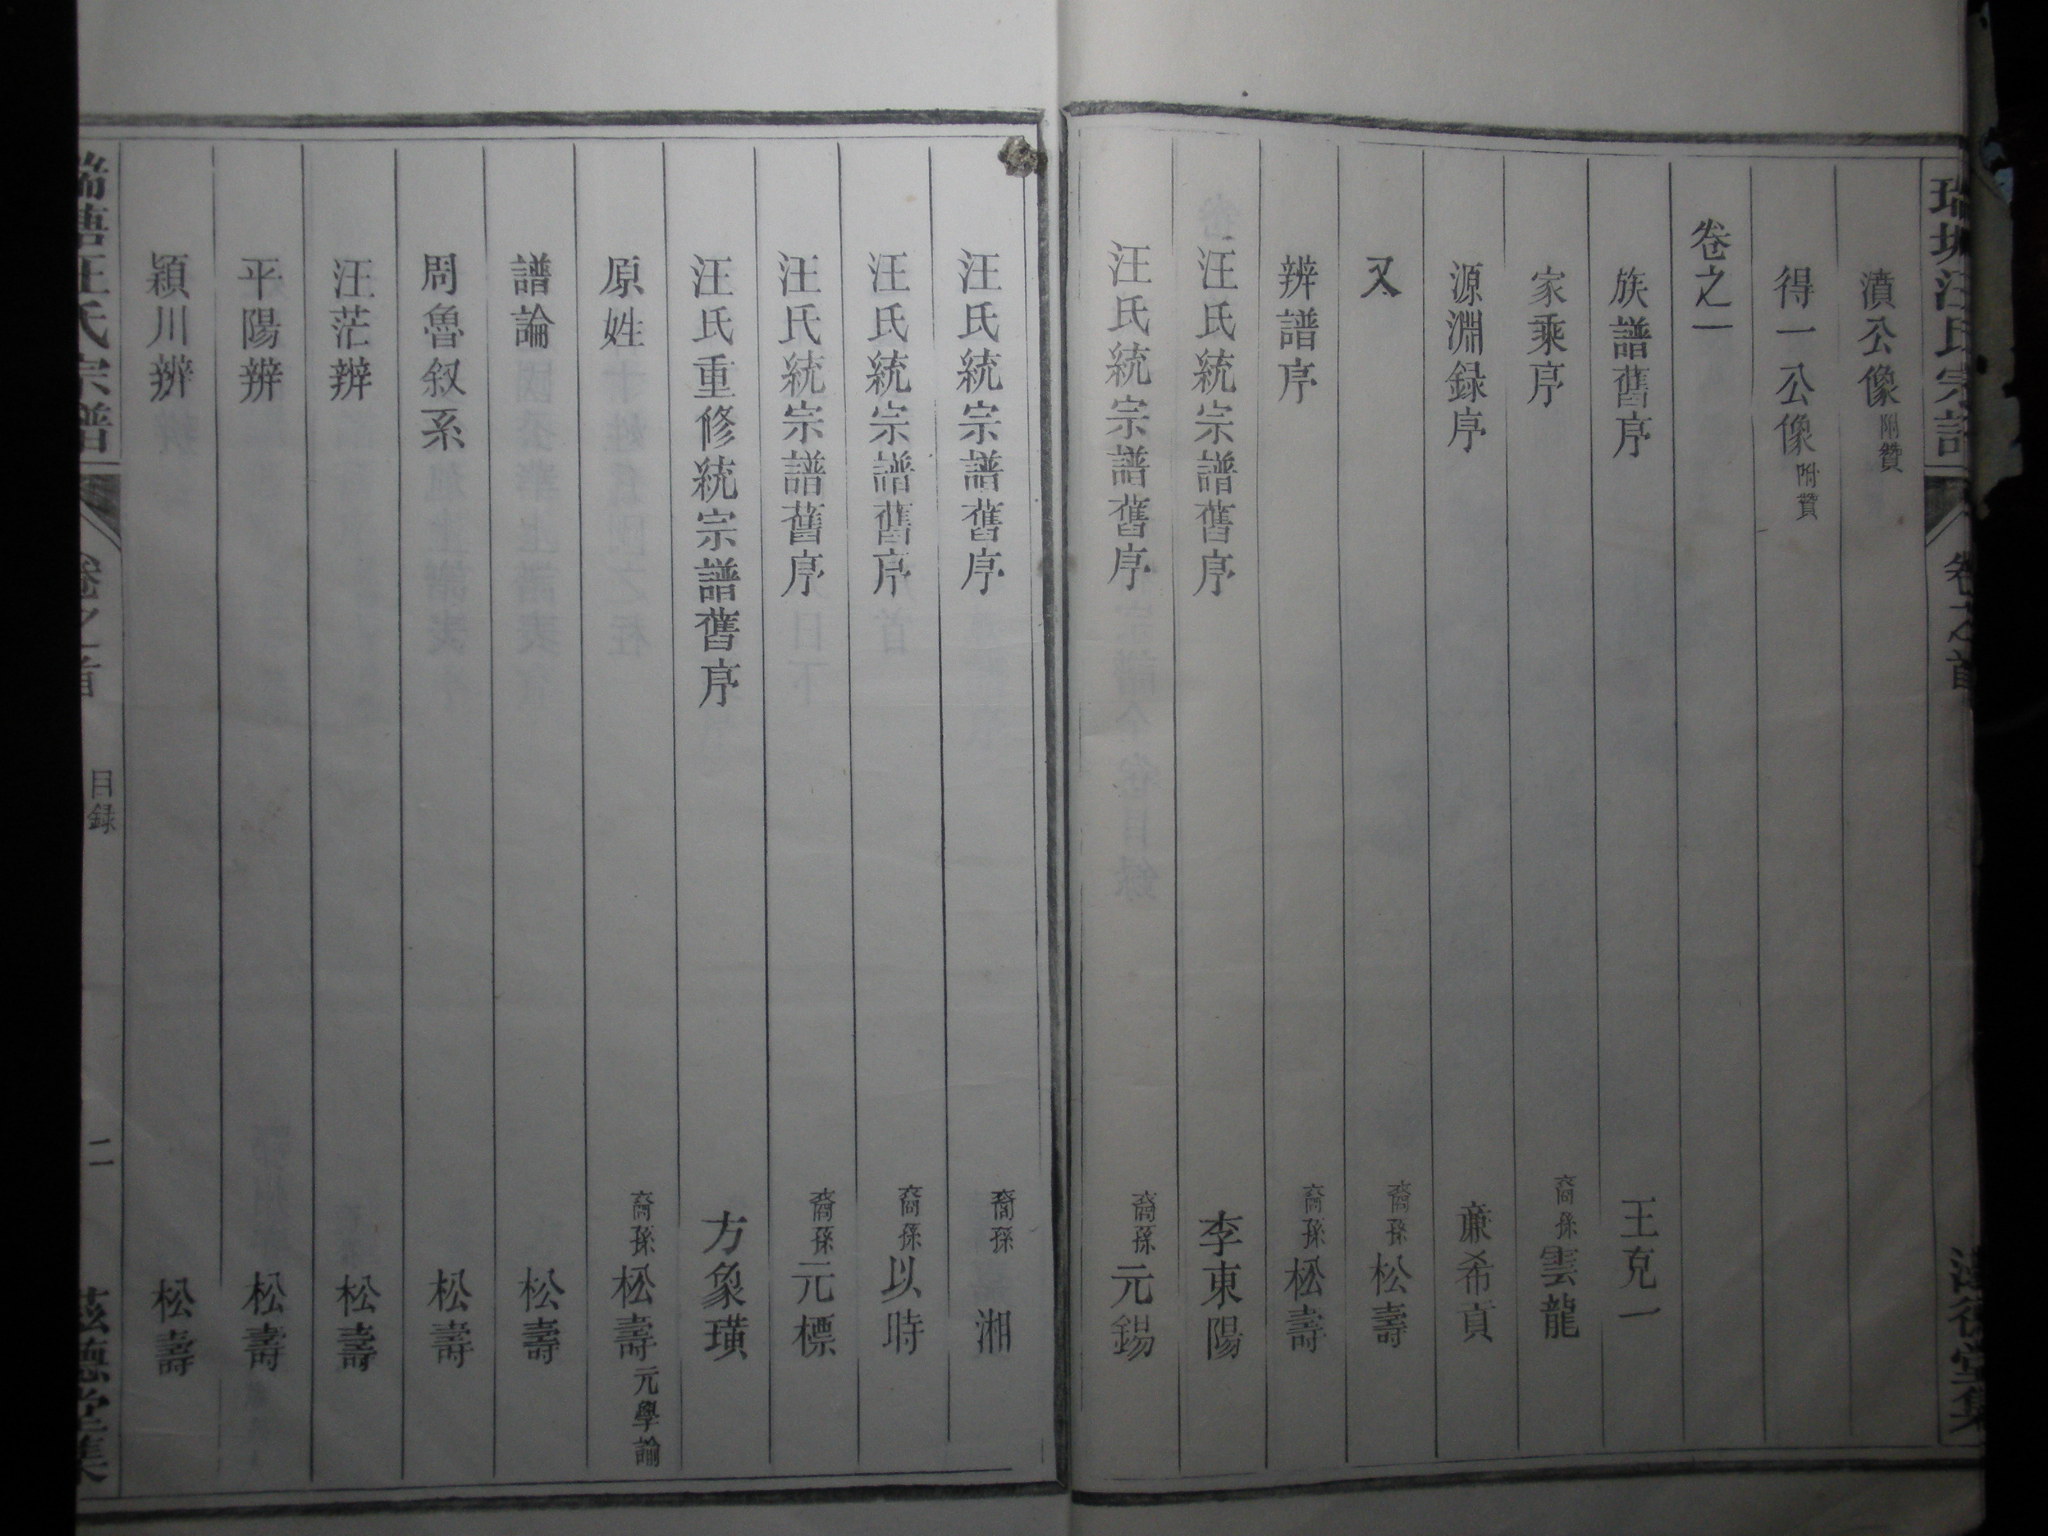 汪氏宗譜
濆公像附贊
得一公像附贊
卷之一
族譜舊序 王克一
家乘序 裔孫雲龍
源淵録序 亷希貢
又 裔孫松壽
辨譜序 裔孫松壽
汪氏統宗譜舊序 李東陽
汪氏統宗譜舊序 裔孫元錫
汪氏統宗譜舊序 裔孫湘
汪氏統宗譜舊序 裔孫以時
汪氏統宗譜舊序 裔孫元標
汪氏重修統宗譜舊序 方象璜
原姓 裔孫松壽元學論
譜論 松壽
周魯叙系 松壽
汪茫辨 松壽
平陽辨 松壽
穎川辨 松壽
瑞塘汪氏宗譜 卷之首 目録 二 滋德堂集